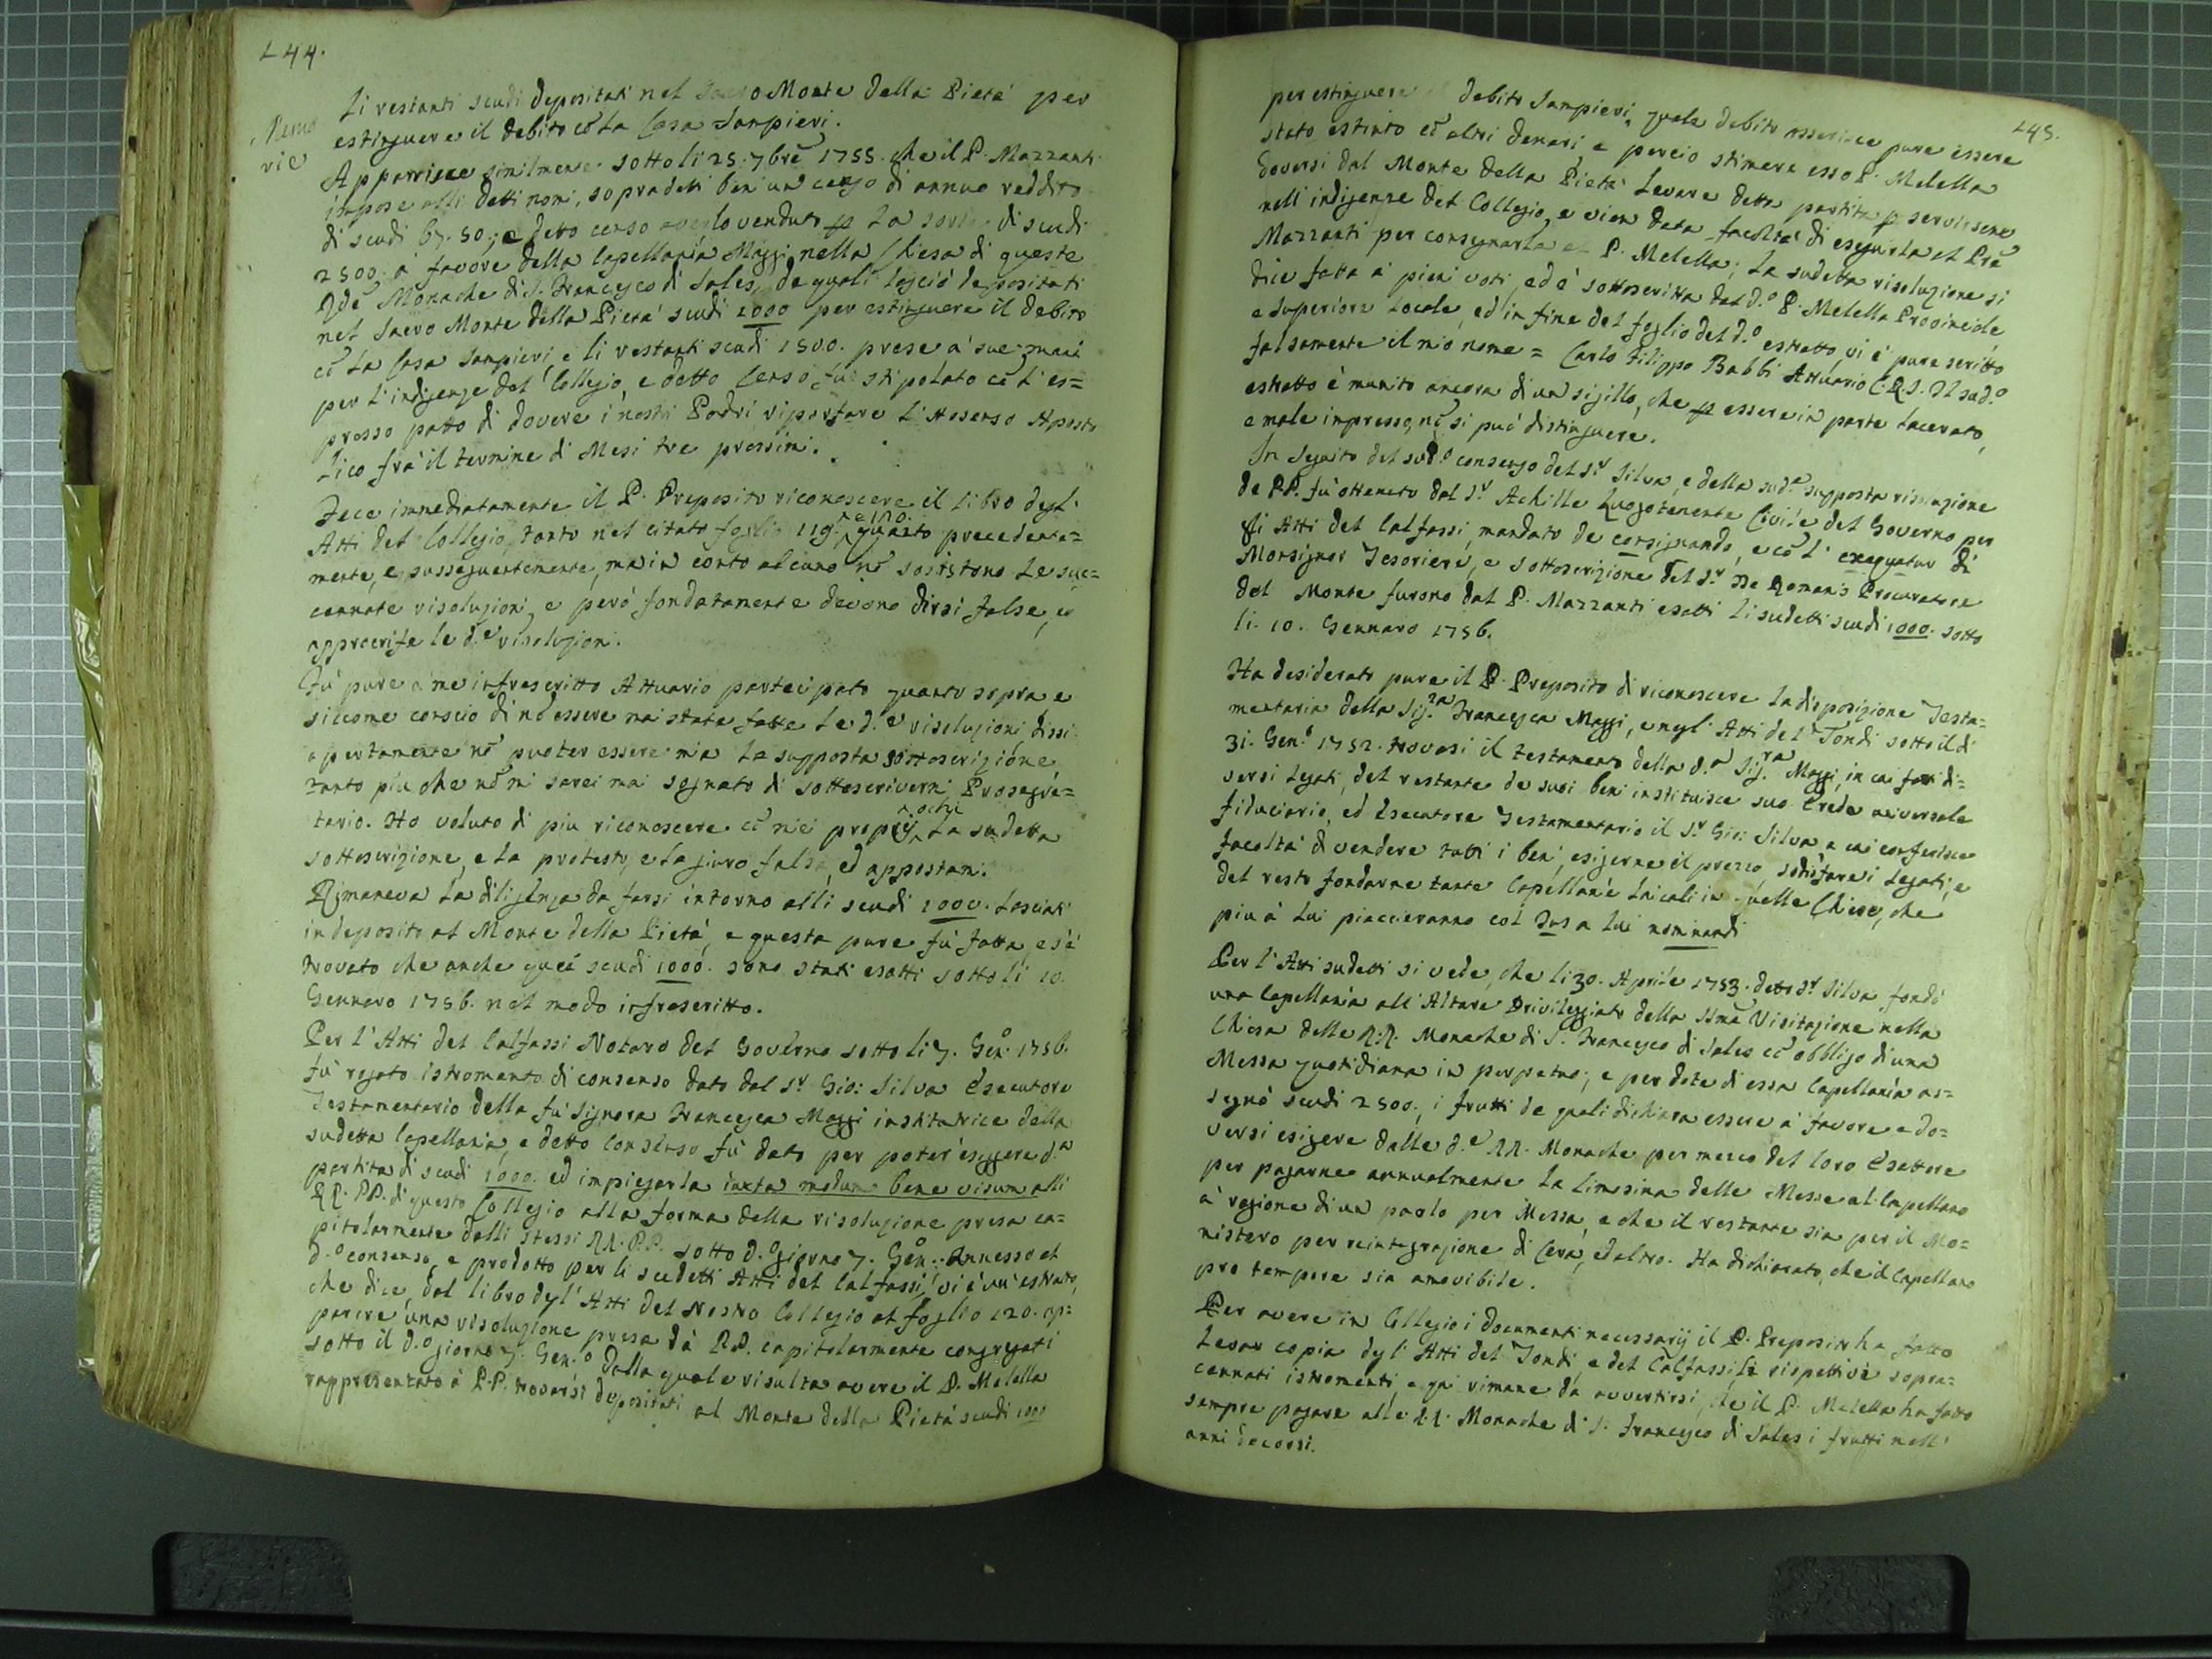 144.
Memo
rie
Li restanti scudi depositati nel Sacro Monte della Pietà per
estinguere il debito cõ la Casa Sampieri.
Apparisce similmente sotto li 25. 7bre 1755. che il P. Mazzanti
impose alli detti nomi, sopradetti beni un censo di annuo reddito
di scudi 67. 50.; e detto censo averlo venduto p la sorte di scudi
2500. à favore della Capellania Maggi nella Chiesa di queste
Rde Monache di S. Francesco di Sales, de quali lasciò depositati
nel Sacro Monte della Pietà scudi 1000 per estinguere il debito
cõ la Casa Sampieri, e li restanti scudi 1500. prese à sue mani
per l'indigenze del Collegio, e detto Censo fù stipolato cõ l'es=
presso patto di dovere i nostri Padri riportare l'Assenso Aposto
lico frà il termine di Mesi tre prossimi.
Fece immediatamente il P. Preposito riconoscere il libro degl'
Atti del Collegio, tanto nel citato foglio 119. e 120. quanto precedente=
mente, e susseguentemente, ma in conto alcuno nõ sosistono le suc=
cennate risoluzioni, e però fondatamente devono dirsi false, ed
appocrife le d.e risoluzioni.
Fù pure à me infrascritto Attuario partecipato quanto sopra e
siccome conscio di nõ essere mai state fatte le d.e risoluzioni dissi
apertamente nõ puoter essere mia la supposta sottoscrizione
tanto più che nõ mi sarei mai sognato di sottoscrivermi Prosegre=
tario. Hò voluto di più riconoscere cõ miei proprij ochi la sudetta
sottoscrizione, e la protesto, e la giuro falsa, ed appostami.
Rimaneva la diligenza da farsi intorno alli scudi 1000. lasciati
in deposito al Monte della Pietà, e questa pure fù fatta, e s'è
trovato che anche quei scudi 1000. sono stati esatti sotto li 10.
Gennaro 1756. nel modo infrascritto.
Per l'Atti del Calfassi Notaro del Governo sotto li 7. Gen.o 1756.
fù rogato istromento di consenso dato dal S.r Gio: Silva Esecutore
Testamentario della fù Signora Francesca Maggi institutrice della
sudetta Capellania, e detto Consenso fù dato per poter esiggere d.a
partita di scudi 1000. ed impiegarla iuxta modum bene visum alli
RR. PP. di questo Collegio alla forma della risoluzione presa ca=
pitolarmente dalli stessi RR. PP. sotto d.o giorno 7. Gen.o: Annesso al
d.o consenso, e prodotto per li sudetti Atti del Calfassi, vi è un' estratto,
che dice, dal libro degl'Atti del Nostro Collegio al foglio 120. ap=
parire una risoluzione presa da RR. capitolarmente congregati
sotto il d.o giorno 7. Gen.o dalla quale risulta avere il P. Melella
rappresentato à P.P. trovarsi depositati al Monte della Pietà scudi 1000
145.
per estinguere il debito Sampieri, quale debito asserisce pure essere
stato estinto cõ altri denari e perciò stimare esso P. Melella
doversi dal Monte della Pietà levare detta partita p servirsene
nell'indigenze del Collegio, e vien data facoltà di eseguirla al Pre
Mazzanti per consegnarla al P. Melella; la sudetta risoluzione si
dice fatta à pieni voti, ed è sottoscritta dal d.o P. Melella Provinciale
e Superiore locale, ed in fine del foglio del d.o estratto vi è pure scritto
falsamente il mio nome = Carlo Filippo Babbi Attuario C.R.S. Il sud.o
estratto è munito ancora di un sigillo, che p essere in parte lacerato,
e male impresso, nõ si può distinguere.
In seguito del sud.o consenso del S.r Silva, e della sud.a supposta risoluzione
de PP. fù ottenuto dal S.r Achille Luogotenente Civile del Governo per
gli Atti del Calfassi, mandato de consignando, e cõ l'exequatur di
Monsignor Tesoriere, e sottoscrizione del S.r De Romanis Procuratore
del Monte furono dal P. Mazzanti esatti li sudetti scudi 1000. sotto
li 10. Gennaro 1756.
Ha desiderato pure il P. Preposito di riconoscere la disposizione Testa=
mentaria della Sig.ra Francesca Maggi, e negl'Atti del Tondi sotto il dì
31. Gen.o 1752. trovasi il testamento della d.a Sig.ra Maggi, in cui fatti di=
versi legati, del restante de suoi beni instituisce suo Erede universale
fiduciario, ed Esecutore Testamentario il S.r Gio: Silva a cui conferisce
facoltà di vendere tutti i beni, esigerne il prezzo, sodisfare i legati, e
del resto fondarne tante Capellanie laicali in quelle Chiese, che
più à lui piacieranno col Jus a lui nominandi
Per l'Atti sudetti si vede, che li 30. Aprile 1753. detto S.r Silva fondò
una Capellania all'Altare Privilegiato della SSma Visitazione nella
Chiesa delle RR. Monache di S. Francesco di Sales cõ obbligo di una
Messa quotidiana in perpetuo, e per dote di essa Capellania as=
segnò scudi 2500., i frutti de quali dichiara essere à favore e do=
versi esigere dalle d.e RR. Monache per mezzo del loro Esattore
per pagarne annualmente la limosina delle Messe al Capellano
à ragione di un paolo per Messa, e che il restante sia per il Mo=
nistero per reintegrazione di Cera, ed altro. Ha dichiarato, che il Capellano
pro tempore sia amovibile.
Per avere in Collegio i documenti necessarij il P. Preposito ha fatto
levar copia degl'Atti del Tondi, e del Calfassi, li rispettivi sopra=
cennati istromenti, e qui rimane dà avvertirsi, che il P. Melella ha fatto
sempre pagare alle RR. Monache di S. Francesco di Sales i frutti nell'
anni decorsi.